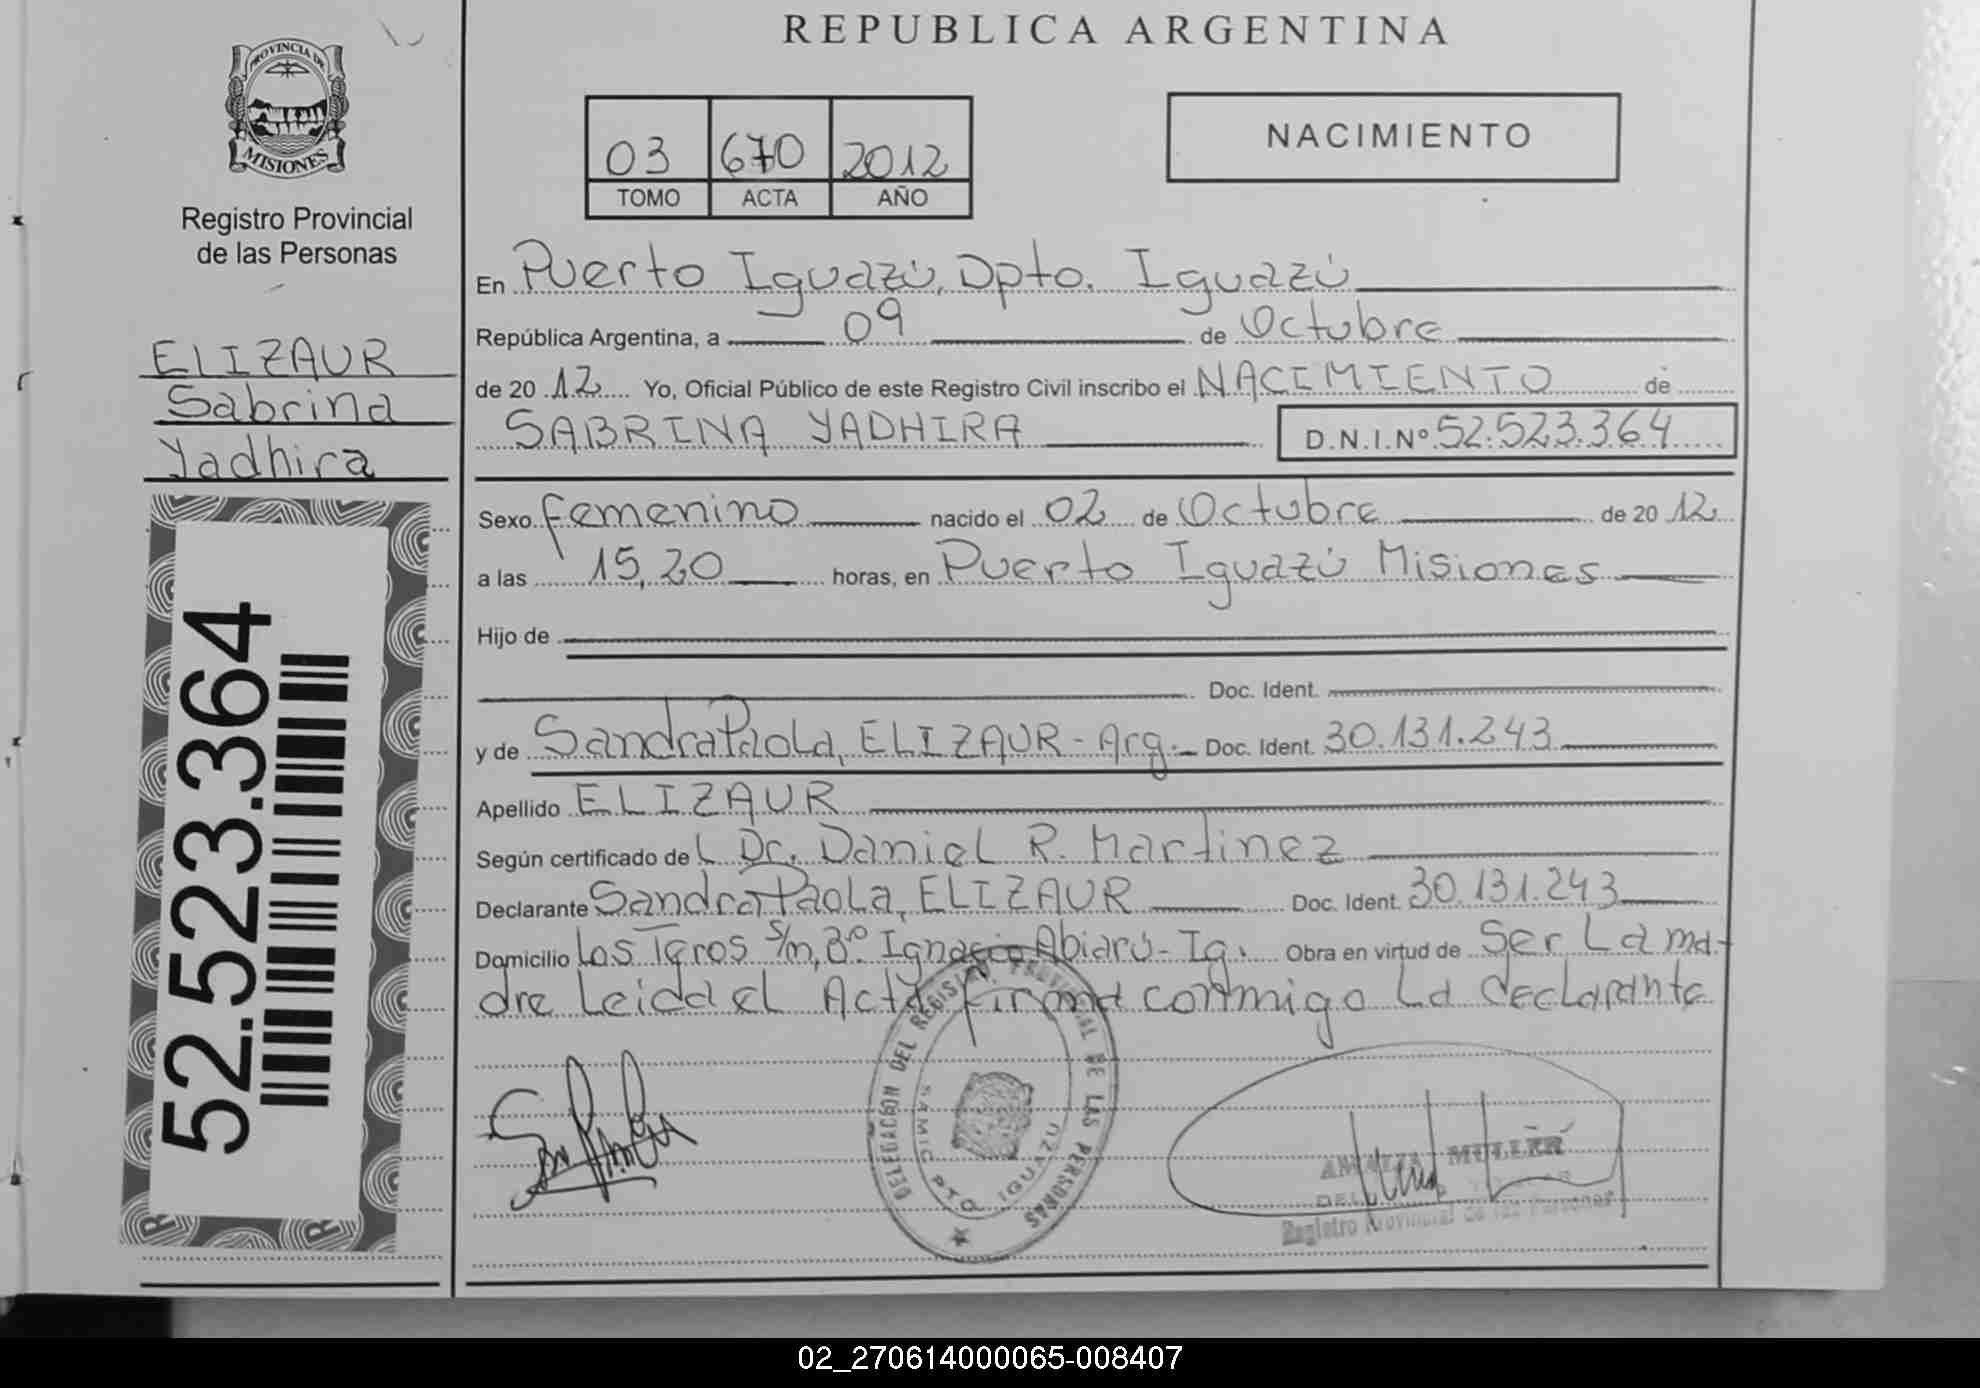 PROVINCIA DE
MISIONES
Registro Provincial
de las Personas
ELIZAUR
Sabrina
Yadhira
52.523.364
REPUBLICA ARGENTINA
03 670 2012
TOMO ACTA AÑO
NACIMIENTO
En Puerto Iguazú, Dpto. Iguazú
República Argentina, a 09 de Octubre
de 2012 Yo, Oficial Público de este Registro Civil inscribo el NACIMIENTO de
SABRINA YADHIRA D.N.I.Nº 52.523.364
Sexo femenino nacido el 02 de Octubre de 2012
a las 15,20 horas, en Puerto Iguazú Misiones
Hijo de
Doc. Ident.
y de Sandra Paola, ELIZAUR - Arg. Doc. Ident. 30.131.243
Apellido ELIZAUR
Según certificado de L Dr. Daniel R. Martinez
Declarante Sandra Paola, ELIZAUR Doc. Ident. 30.131.243
Domicilio Los Teros s/n, Bº Ignacio Abiarú - Ig. Obra en virtud de Ser La ma-
dre Leida el Acta firma conmigo La declarante
DELEGACION DEL REGISTRO PROVINCIAL DE LAS PERSONAS
SAMIC PTO IGUAZU
AMALIA MULLER
Registro Provincial de las Personas
02_270614000065-008407